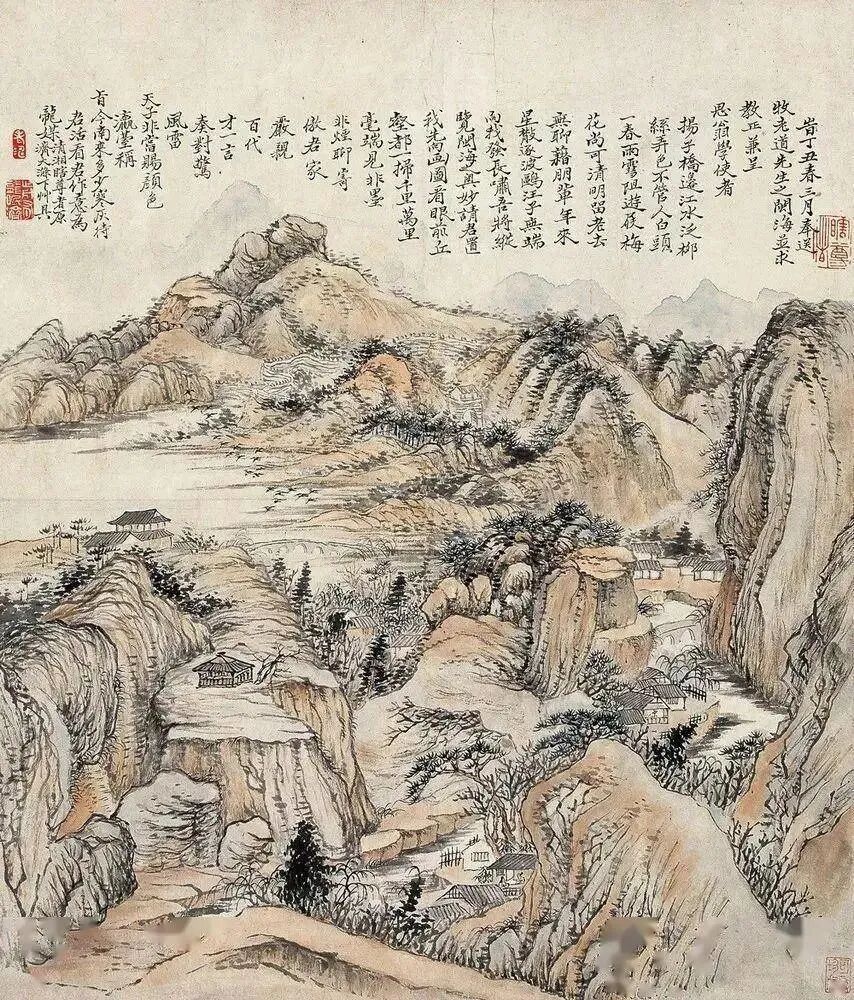 岢丁丑春三月奉送
牧老道先生之閩海並求
教正兼呈
思翁學使者
揚子橋邊江水泛柳
絲弄色不管人白頭
一春雨雪阻遊屐梅
花尚可清明留老去
無聊藉朋輩年來
星散逐波鷗江子無端
向我發長嘯吾將縱
覽閩海與妙請君置
我嵩画圖看眼前丘
壑都一掃千里萬里
毫端見非墨
非煙聊寄
傲君家
嚴親
百代
才一言
奏對驚
風雷
天子非常賜顏色
瀛臺稱
旨今南來多少寒灰待
君活看君作意為
龍媒 清湘瞎尊者原
濟大滌下艸具